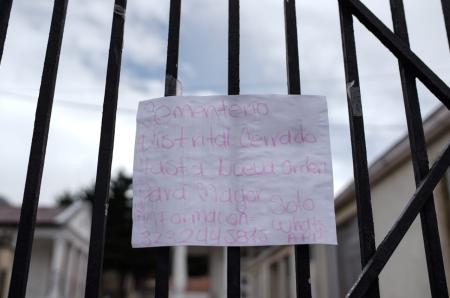 Cementerio
Distrital Cerrado
Hasta Nueva Orden
Para Mayor Solo
Información= Whats
App